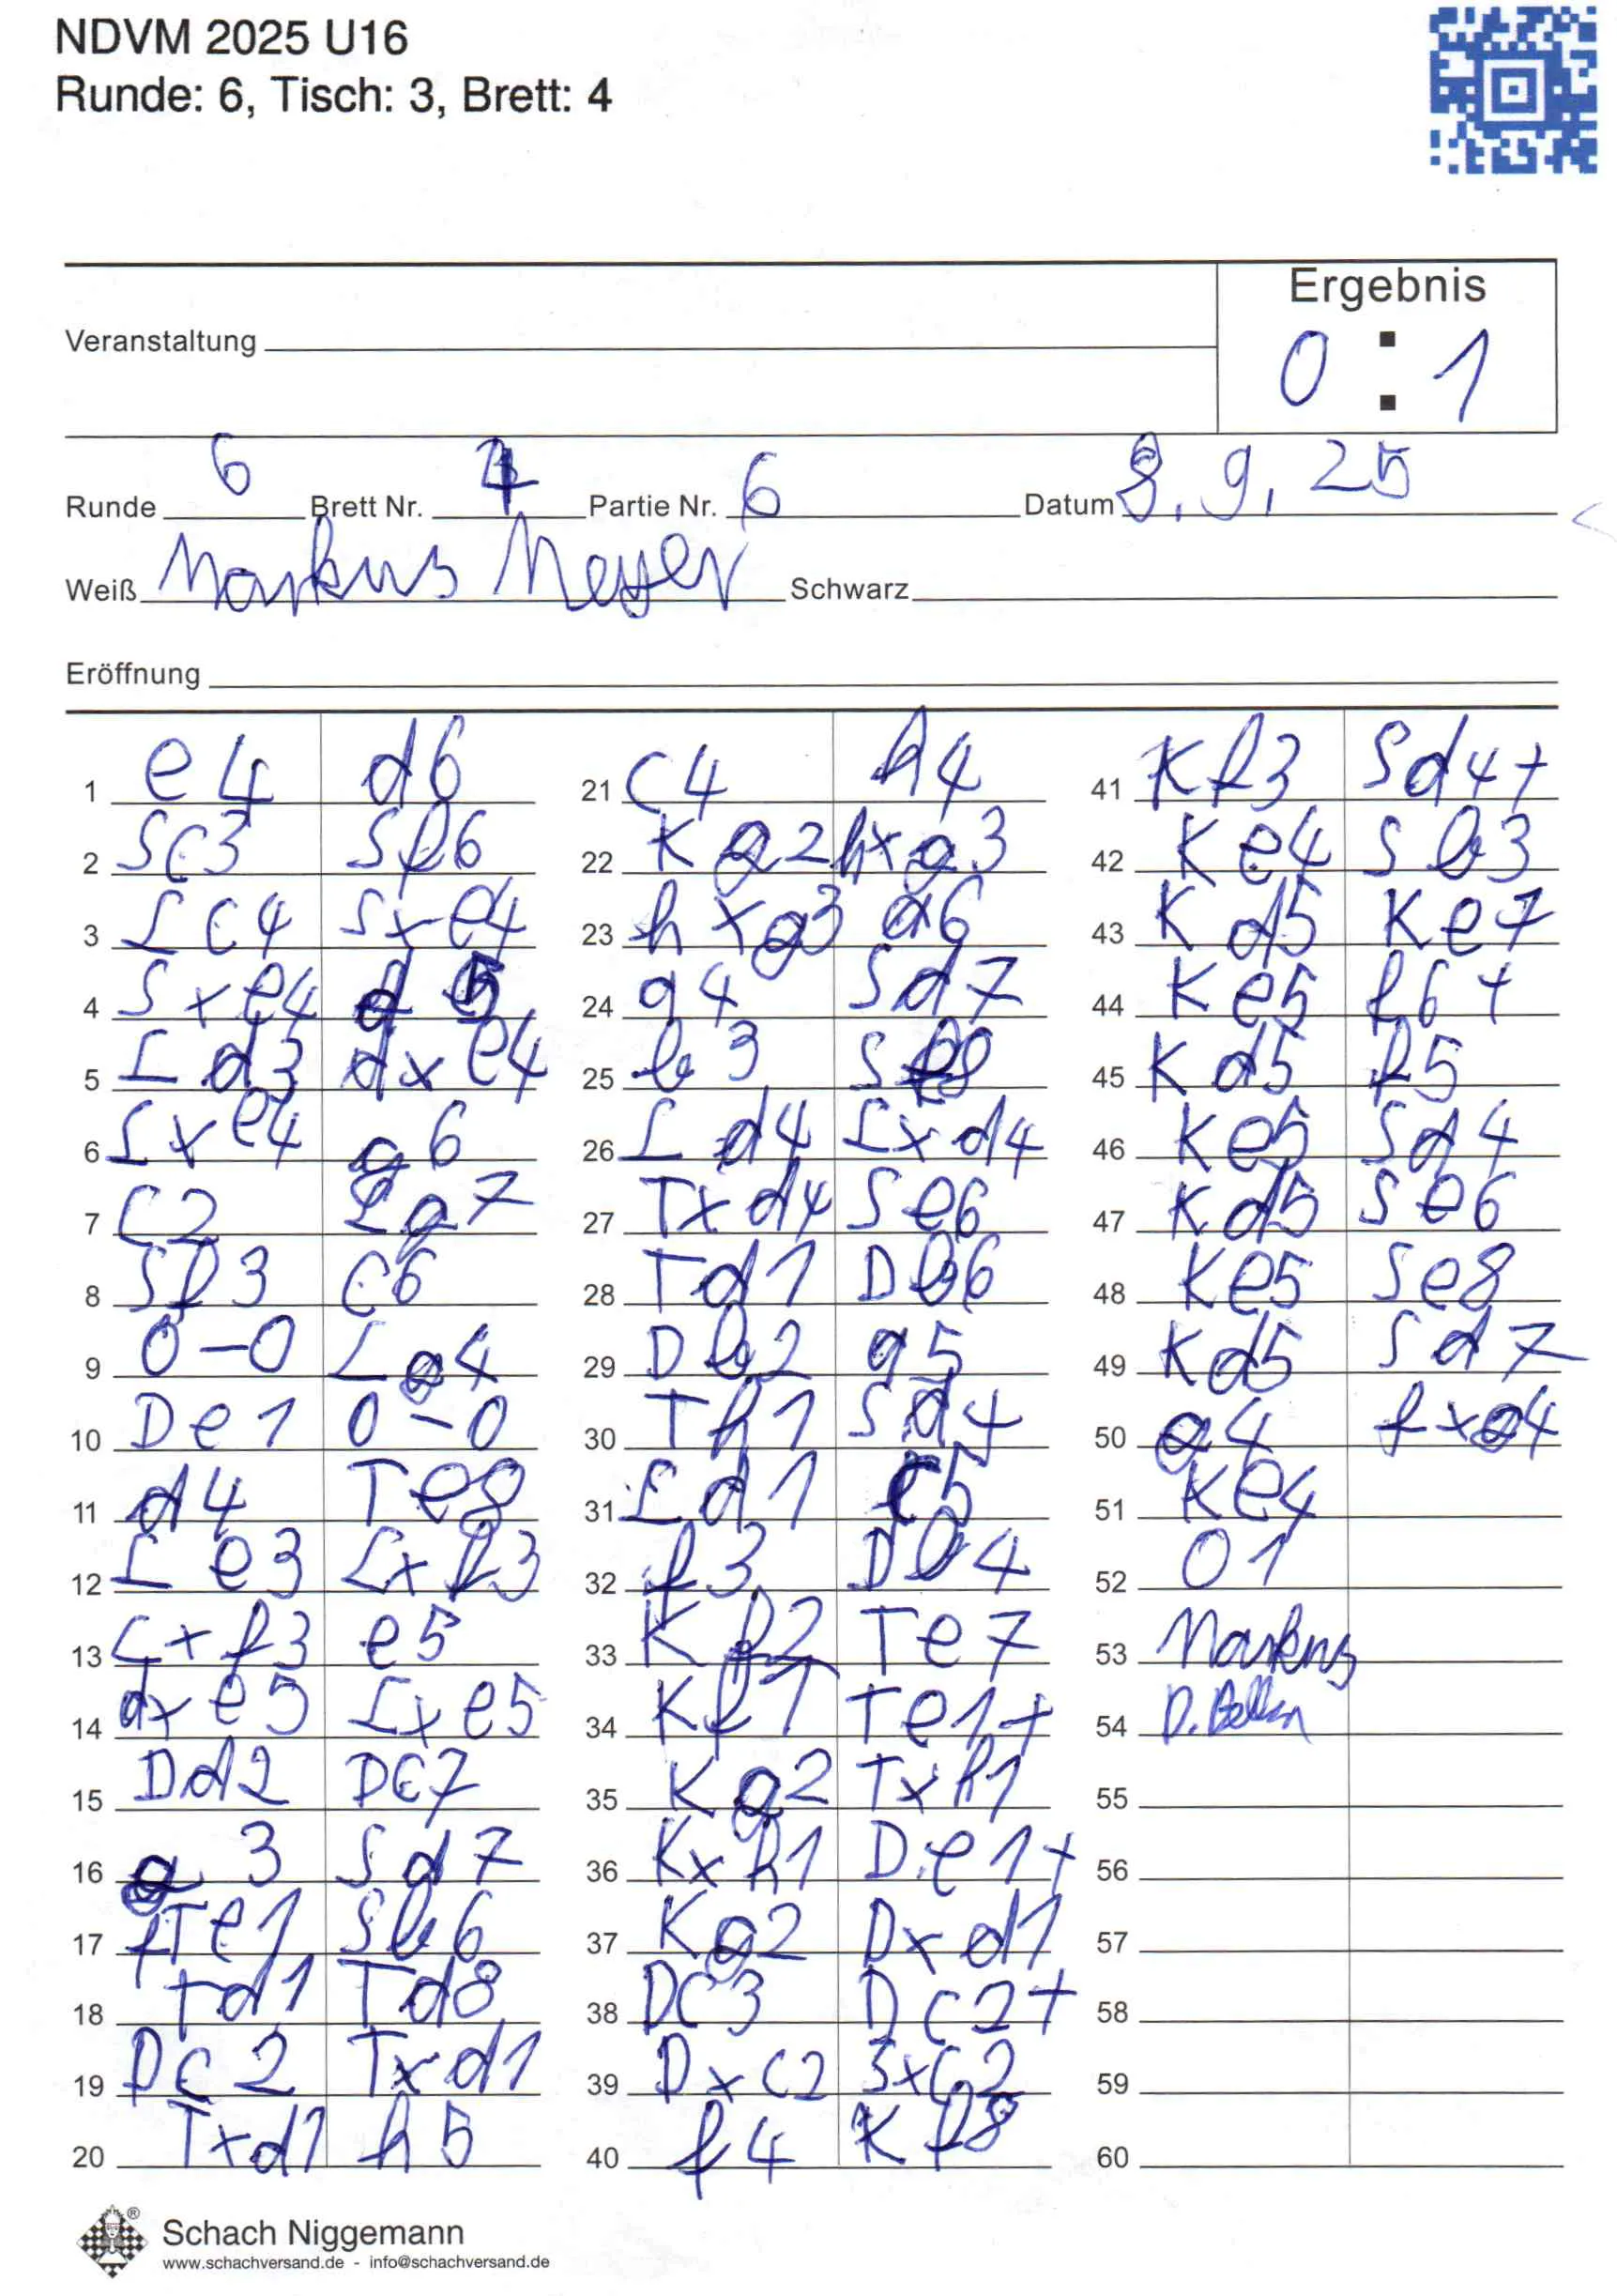 NDVM 2025 U16
Runde: 6, Tisch: 3, Brett: 4
Ergebnis
Veranstaltung
0 : 1
Runde 6 Brett Nr. 4 Partie Nr. 6 Datum 8.9.25
Weiß Markus Meyer Schwarz
Eröffnung
1 e4 d6
2 Sc3 Sf6
3 Lc4 Sxe4
4 Sxe4 d5
5 Ld3 dxe4
6 Lxe4 g6
7 C2 Lg7
8 Sf3 c6
9 0-0 Lg4
10 De1 0-0
11 d4 Te8
12 Le3 Lxf3
13 Lxf3 e5
14 dxe5 Lxe5
15 Dd2 Dc7
16 g3 Sd7
17 fTe1 Sb6
18 Td1 Td8
19 Dc2 Txd1
20 Txd1 h5
21 c4 h4
22 Kg2 hxg3
23 hxg3 a6
24 g4 Sd7
25 b3 Sf8
26 Ld4 Lxd4
27 Txd4 Se6
28 Td1 Db6
29 Db2 g5
30 Th1 Sd4
31 Ld1 c5
32 f3
33 Kf2 Te7
34 Kf1 Te1+
35 Kg2 Txh1
36 Kxh1 De1+
37 Kg2 Dxd1
38 Dc3 Dc2+
39 Dxc2 Sxc2
40 f4 Kf8
41 Kf3 Sd4+
42 Ke4 Sb3
43 Kd5 Ke7
44 Ke5 f6+
45 Kd5 f5
46 Ke5 Sd4
47 Kd5 Se6
48 Ke5 Se8
49 Kd5 Sd7
50 a4 fxg4
51 Ke4
52 0 1
53 Markus
54 D.
55
56
57
58
59
60
Schach Niggemann
www.schachversand.de - info@schachversand.de